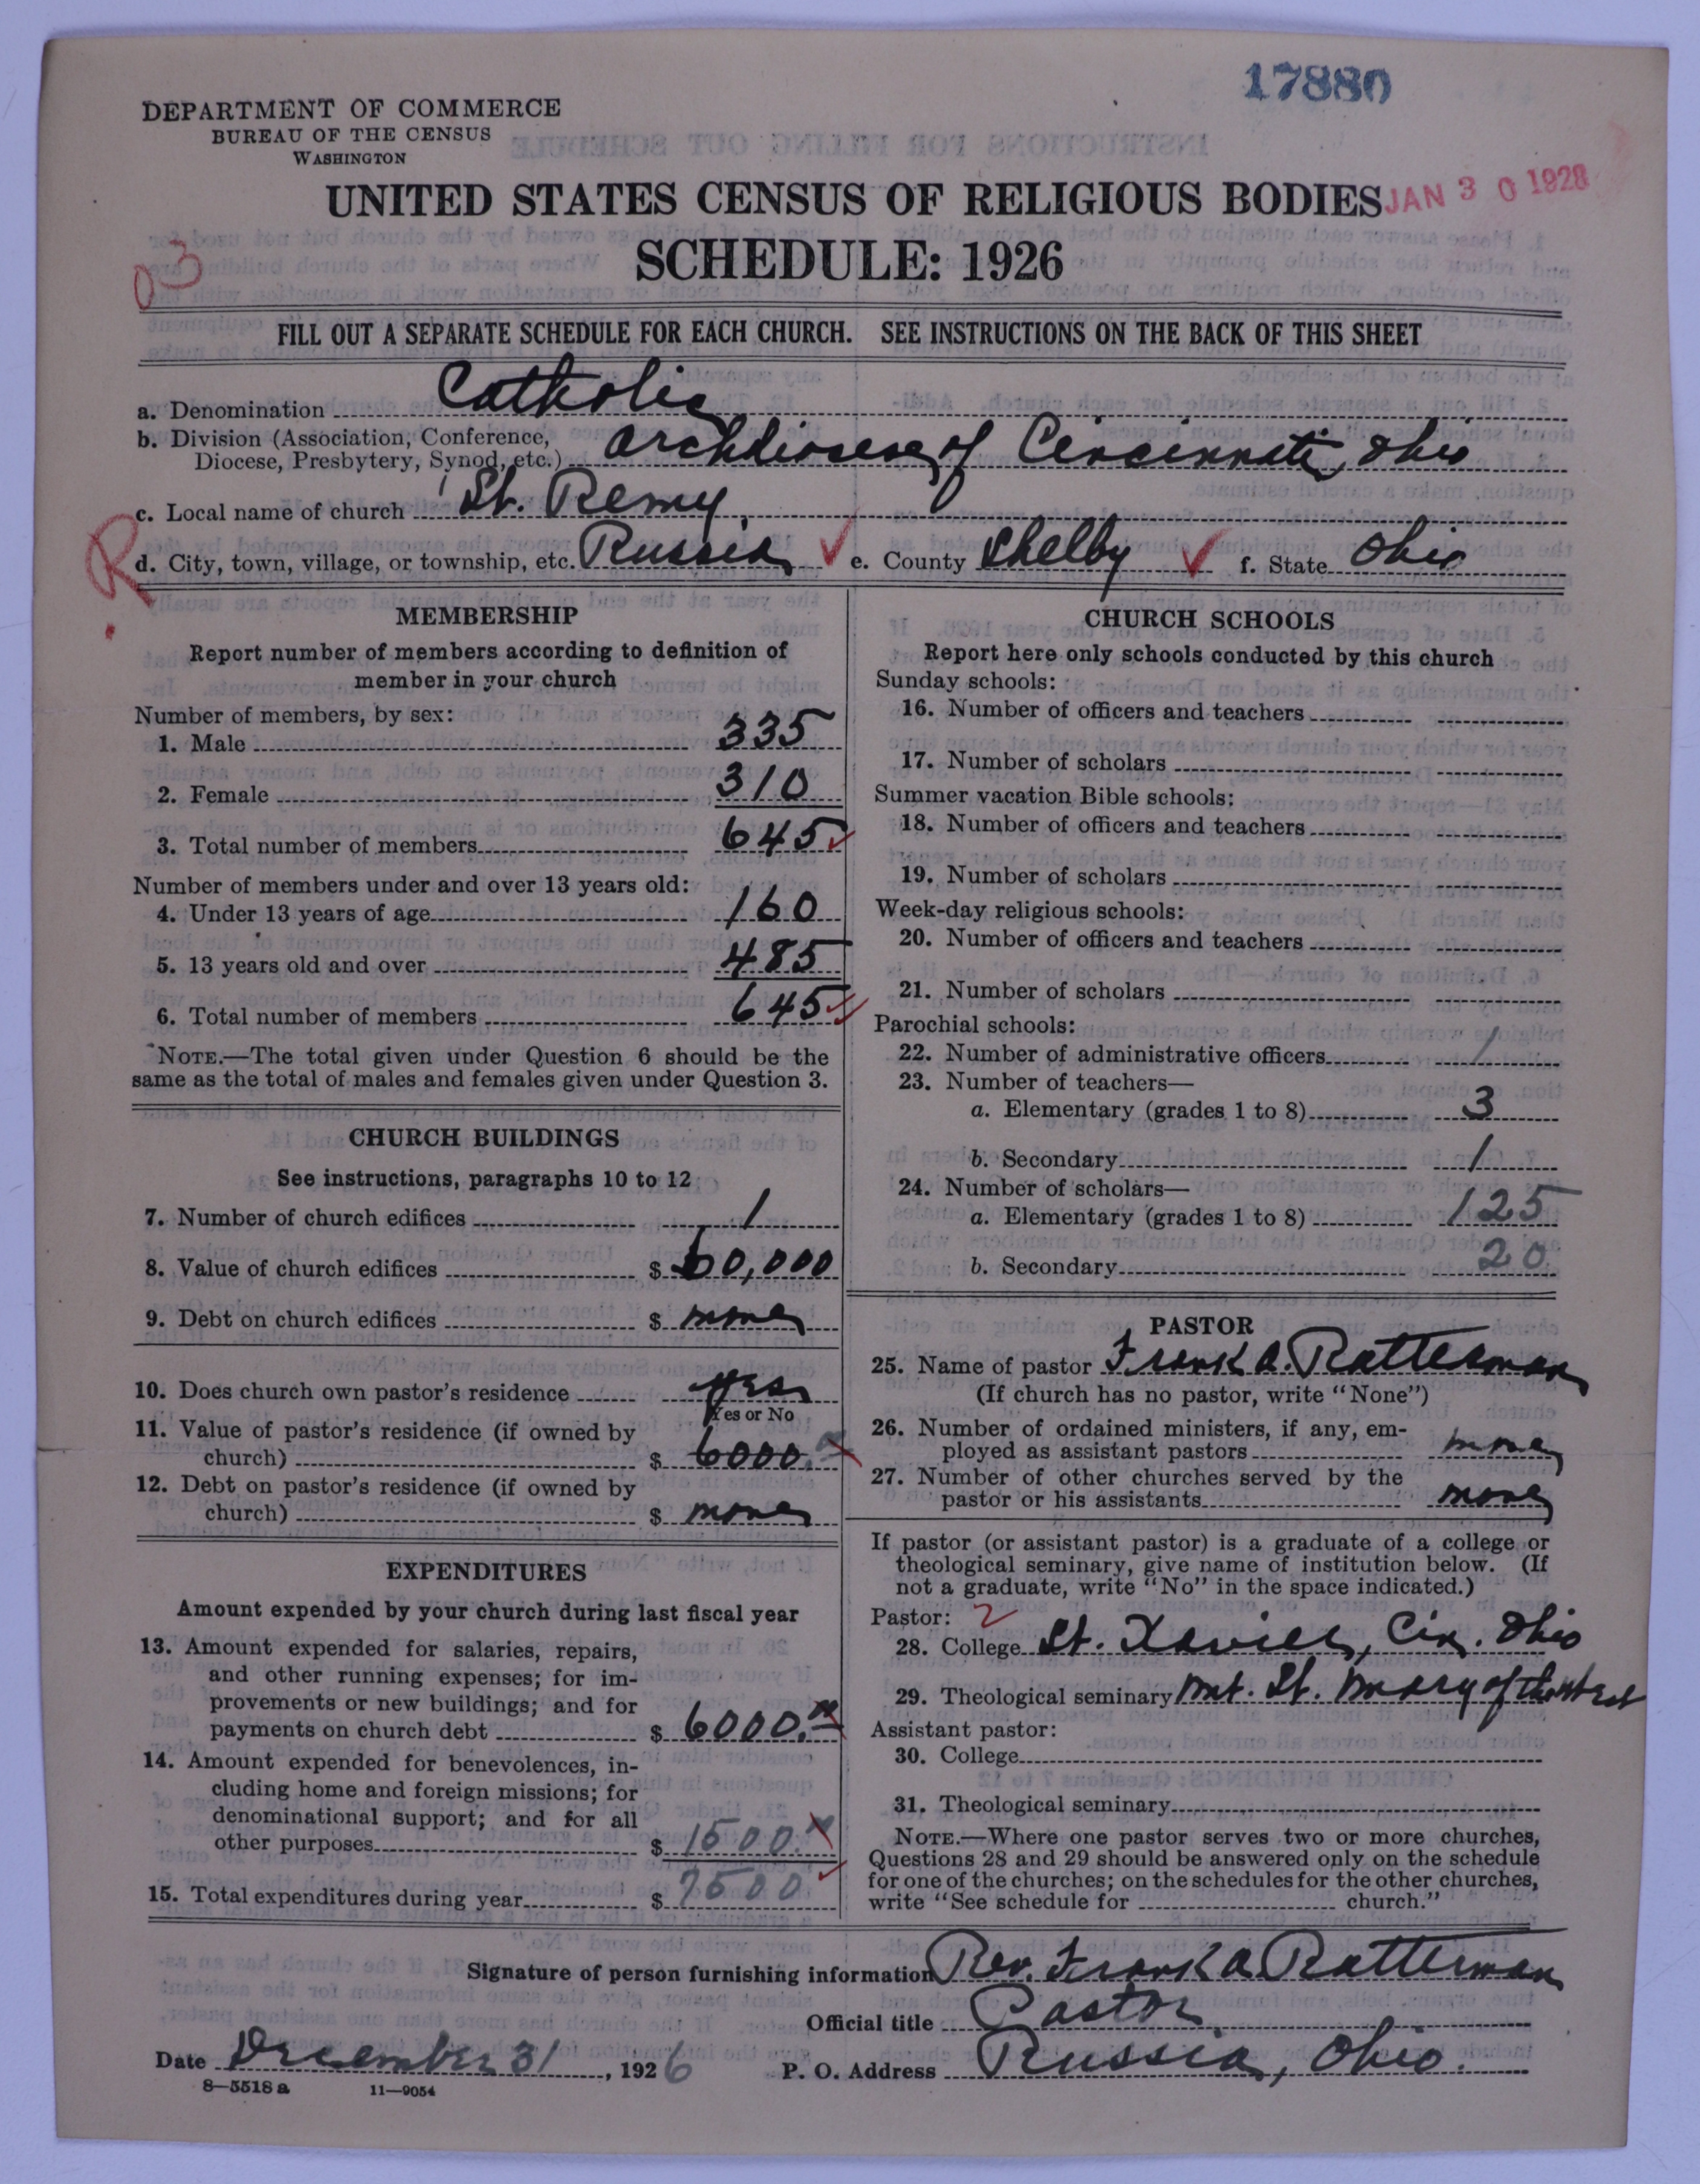 17880
DEPARTMENT OF COMMERCE
BUREAU OF THE CENSUS
WASHINGTON
UNITED STATES CENSUS OF RELIGIOUS BODIES
JAN 30 1928
SCHEDULE: 1926
03
FILL OUT A SEPARATE SCHEDULE FOR EACH CHURCH. SEE INSTRUCTIONS ON THE BACK OF THIS SHEET
a. Denomination Catholic
b. Division (Association, Conference,
Diocese, Presbytery, Synod, etc.) Archdiocese of Cincinnati, Ohio
c. Local name of church St. Remy
R
d. City, town, village, or township, etc. Russia e. County Shelby f. State Ohio
MEMBERSHIP
Report number of members according to definition of
member in your church
Number of members, by sex:
1. Male 335
2. Female 310
3. Total number of members 645
Number of members under and over 13 years old:
4. Under 13 years of age 160
5. 13 years old and over 485
6. Total number of members 645
NOTE.—The total given under Question 6 should be the
same as the total of males and females given under Question 3.
CHURCH BUILDINGS
See instructions, paragraphs 10 to 12
7. Number of church edifices 1
8. Value of church edifices $ 60,000
9. Debt on church edifices $ none
10. Does church own pastor's residence yes
Yes or No
11. Value of pastor's residence (if owned by
church) $ 6000.
12. Debt on pastor's residence (if owned by
church) $ none
EXPENDITURES
Amount expended by your church during last fiscal year
13. Amount expended for salaries, repairs,
and other running expenses; for im-
provements or new buildings; and for
payments on church debt $ 6000.
14. Amount expended for benevolences, in-
cluding home and foreign missions; for
denominational support; and for all
other purposes $ 1500.
15. Total expenditures during year $ 7500
CHURCH SCHOOLS
Report here only schools conducted by this church
Sunday schools:
16. Number of officers and teachers
17. Number of scholars
Summer vacation Bible schools:
18. Number of officers and teachers
19. Number of scholars
Week-day religious schools:
20. Number of officers and teachers
21. Number of scholars
Parochial schools:
22. Number of administrative officers 1
23. Number of teachers—
a. Elementary (grades 1 to 8) 3
b. Secondary 1
24. Number of scholars—
a. Elementary (grades 1 to 8) 125
b. Secondary 20
PASTOR
25. Name of pastor Frank A. Ratterman
(If church has no pastor, write "None")
26. Number of ordained ministers, if any, em-
ployed as assistant pastors none
27. Number of other churches served by the
pastor or his assistants none
If pastor (or assistant pastor) is a graduate of a college or
theological seminary, give name of institution below. (If
not a graduate, write "No" in the space indicated.)
Pastor: 2
28. College St. Xavier, Cin. Ohio
29. Theological seminary Mt. St. Mary of the West
Assistant pastor:
30. College
31. Theological seminary
NOTE.—Where one pastor serves two or more churches,
Questions 28 and 29 should be answered only on the schedule
for one of the churches; on the schedules for the other churches,
write "See schedule for church."
Signature of person furnishing information Rev. Frank A. Ratterman
Official title Pastor
Date December 31, 1926 P. O. Address Russia, Ohio.
8—5518 a 11—9054